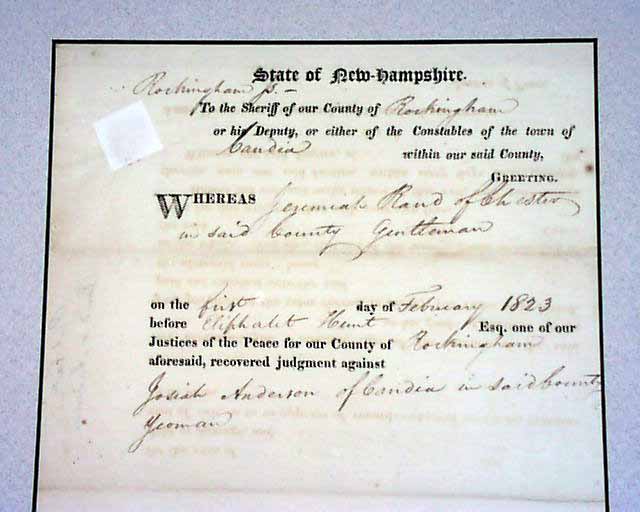 State of New-Hampshire.
Rockingham ss. —
To the Sheriff of our County of Rockingham
or his Deputy, or either of the Constables of the town of
Candia within our said County,
GREETING.
WHEREAS Jeremiah Rand of Chester
in said County Gentleman
on the first day of February 1823
before Eliphalet Hunt Esq. one of our
Justices of the Peace for our County of Rockingham
aforesaid, recovered judgment against
Josiah Anderson of Candia in said County
Yeoman